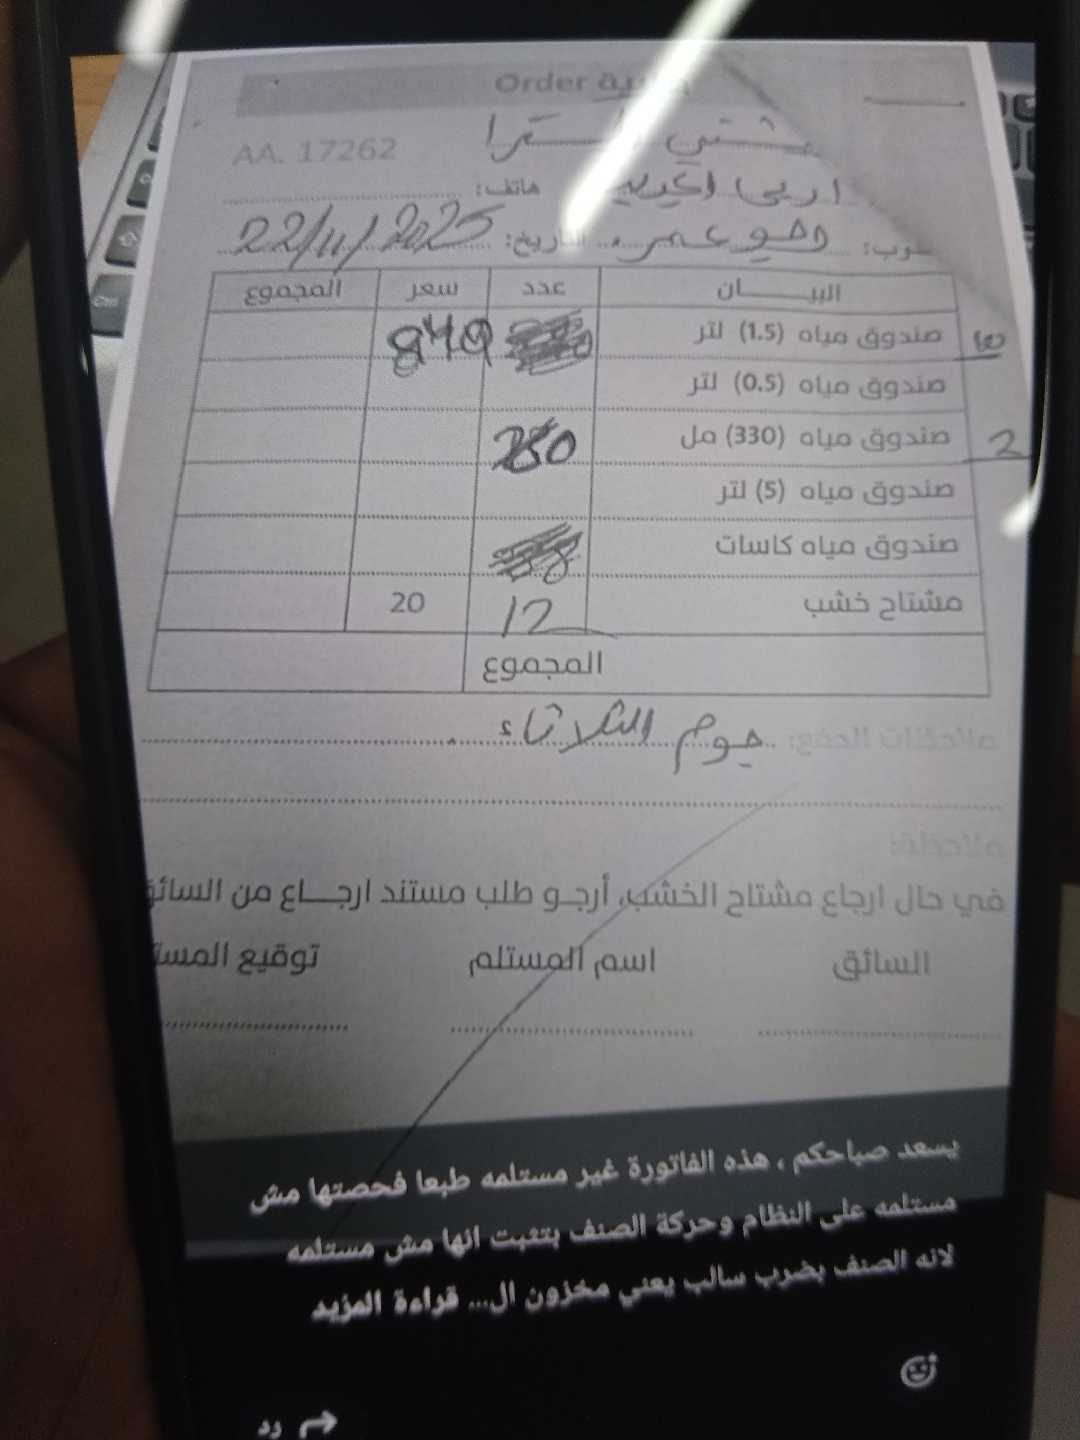 Order
AA. 17262
هاتف:
التاريخ: 22/11/2025
البيـــــان عدد سعر المجموع
صندوق مياه (1.5) لتر 840
صندوق مياه (0.5) لتر
2 صندوق مياه (330) مل
صندوق مياه (5) لتر
صندوق مياه كاسات
مشتاح خشب 12 20
المجموع
ملاحظات الدفع: يوم الثلاثاء
ملاحظة:
في حال ارجاع مشتاح الخشب، أرجـو طلب مستند ارجـــاع من
السائق اسم المستلم توقيع
يسعد صباحكم ، هذه الفاتورة غير مستلمه طبعا فحصتها مش
مستلمه على النظام وحركة الصنف بتثبت انها مش مستلمه
لانه الصنف بضرب سالب يعني مخزون ال... قراءة المزيد
رد
Ctrl